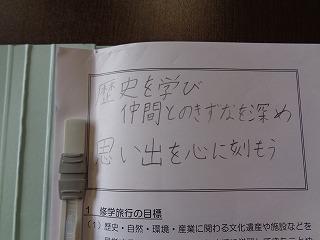 歴史を学び
仲間とのきずなを深め
思い出を心に刻もう
1 修学旅行の目標
(1) 歴史・自然・環境・産業に関わる文化遺産や施設などを